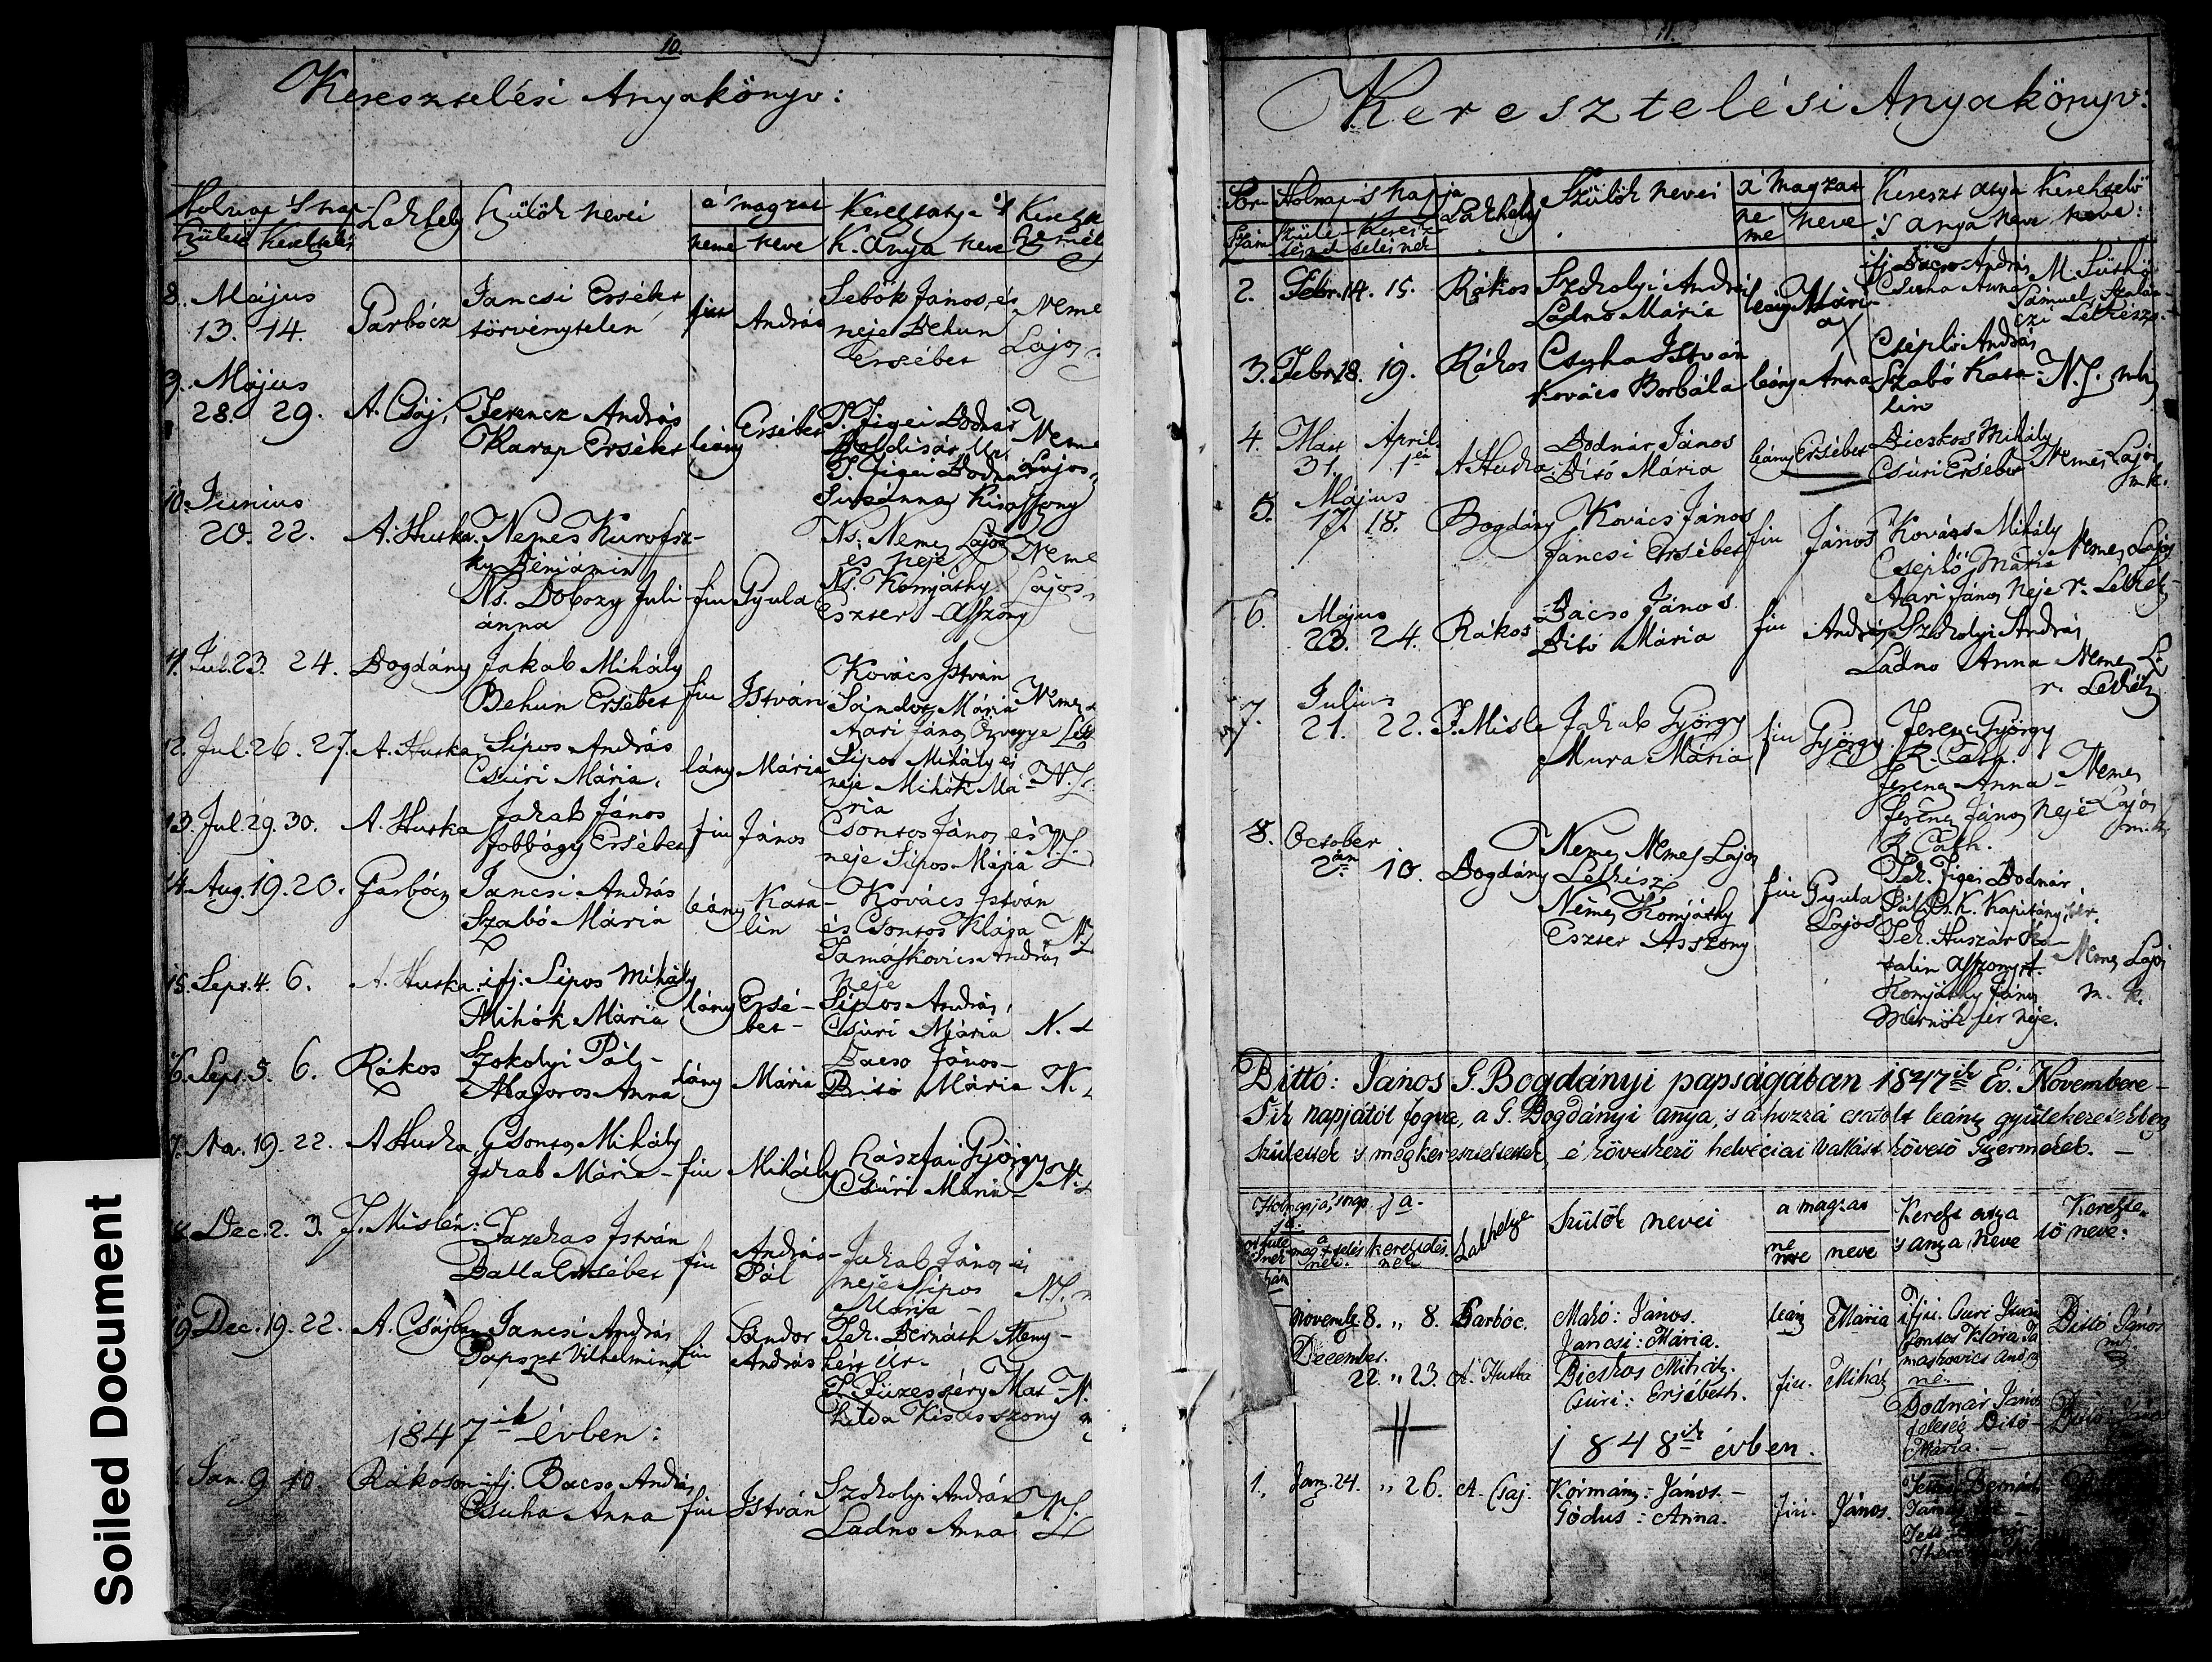 10.
Keresztelési Anyakönyv:
Holnap 's nap
Lakhely
Szülők nevei
á magzat
neme neve
Keresztatya 's
K. anya neve
8. Május
13. 14. Garbócz
Jancsi Ersébet
törvénytelen
fiu András
Sebők János és
neje Behun
Ersébet
Neme
Lajos
9. Május
28. 29. A. Csáj,
Ferencz András
Karap Ersébet
leány Ersébet
T. Figei Bodnár
Boldisár Ur.
T. Figei Bodnár
Susánna Kisasszony
Neme
Lajos
10. Junius
20. 22. A. Hutka.
Nemes Kurofsz-
ky Béniámin
Ns. Dobozy Juli-
anna
fiu Gyula
Ns. Nemes Lajos
és neje
Ns. Komjáthy
Eszter Asszony
Neme
Lajos
11. Jul. 23. 24. Bogdány
Jakab Mihály
Behun Ersébet
fiu István
Kovács István
Sándor Mária
Aari János Özvegye
Nemes
12. Jul. 26. 27. A. Hutka
Sipos András
Csúri Mária.
lány Mária
Sipos Mihály és
neje Mihók Má-
ria
N. L.
13. Jul. 29. 30. A. Hutka
Jakab János
Jobbágy Ersébet
fiu János
Csontos János és
neje Sipos Mária
N. L.
14. Aug. 19. 20. Garbócz
Jancsi András
Szabó Mária
leány Kata-
lin
Kovács István
és Csontos Klára
Tamáskovics András
neje
N. L.
15. Sept. 4. 6. A. Hutka.
ifj. Sipos Mihály
Mihók Mária
lány Ersé-
bet
Sipos András,
Csúri Mária
N. L.
16. Sept. 5. 6. Rákos
Szokolyi Pál-
Magoros Anna
lány Mária
Bacso János-
Bitó Mária
N.
17. No. 19. 22. A Hutka
Csontos Mihály
Jakab Mária
fiu Mihály
Császtai György
Csúri Mária
N.
18. Dec. 2. 3. F. Mislén:
Fazekas István
Balla Ersébet
fiu András
Pál
Jakab János és
neje Sipos
Mária
N. L.
19. Dec. 19. 22. A. Csájban
Jancsi András
Papszt Vilhelmina
fiu Sándor
András
Tek. Bernáth Meny-
hért Ur.
T. Füzesséry Mat-
hilda Kisasszony
1847ik évben:
1. Jan. 9 10. Rákoson
ifj. Bacso András
Csuha Anna
fiu István
Szokolyi András
Ladno Anna
N. L.
11.
Keresztelési Anyakönyv:
Sor
Szám
Holnap 's napja
Lakhely
Szülők nevei
a' magzat
ne
me neve
Kereszt atya
's anya neve
Keresztelő
neve:
2. Febr. 14. 15. Rákos
Szokolyi András
Ladno Mária
leány Mári-
a
ifj Bacso András
Csuha Anna
M. Süthő
Sámuel
3. Febr. 18. 19. Rákos
Csuha István
Kovács Borbála
leány Anna
Cséplő András
Szabó Kata-
lin
N. L. mk
4. Mart April
31. 1én A Hutka
Bodnár János
Bitó Mária
leány Ersébet
Bicskos Mihály
Csúri Ersébet
Nemes Lajos
mk.
5. Május
17. 18. Bogdány
Kovács János
Jancsi Ersébet
fiu János
Kovács Mihály
Cseplő Mária
Aari János neje
Nemes Lajos
r. Lelkész
6. Május
23. 24. Rákos
Bacso János
Bitó Mária
fiu András
Szokolyi András
Ladno Anna
Nemes L.
r. Lelkész
7. Julius
21. 22. F. Misle
Jakab György
Mura Mária
fiu György
Ferencz György
R. Cath.
Ferencz Anna
Ferencz János neje
R. Cath.
Nemes
Lajos
m.k.
8. October
2án 10. Bogdány
Nemes Nemes Lajos
Lelkész
Nemes Komjáthy
Eszter Asszony
fiu Gyula
Lajos
Tek. Figei Bodnár
Pál Cs. K. Kapitány úr.
Tek. Huszár Ka-
talin Asszony t.
Komjáthy János
Mérnök úr neje.
Nemes Lajos
m. k.
Bittó: János G. Bogdányi papságában 1847ik Év. Novembere-
5ik napjától fogva, a G. Bogdányi anya, 's a hozzá csatolt leány gyülekezetekben
születtek 's megkereszteltettek, é következő helvéciai vallást követő Gyermekek. —
Lakhelye
Szülők nevei
a magzat
ne
me neve
Kereszt atya
's anya neve
Kereszte-
lő neve:
Novemb. 8. " 8. Garbóc.
Makó: János.
Jancsi: Mária.
leány Mária
ifjú. Csuri István
Csontos Klára Ta
maskovics Andrá
né.
Bittó János
mk
December.
22. " 23. A. Hutka
Bicskos Mihály.
Csuri: Ersébeth.
fiu. Mihály
Bodnár János
felesége Bitó
Mária. —
Bittó János
1848ik évben.
1. Jan. 24. " 26. A. Csaj.
Kormány: János. —
Gódus: Anna.
fiu. János.
Tekint. Bernáth
Soiled Document